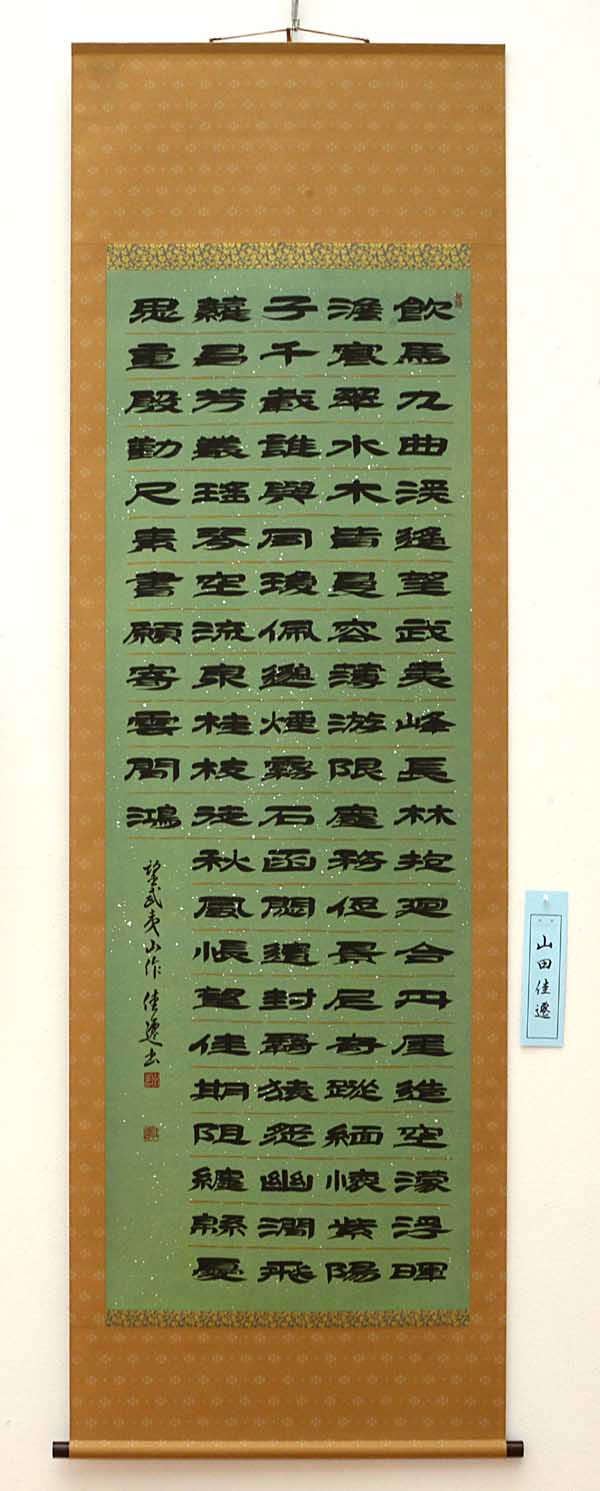 飲馬九曲溪遙望武夷峰長林抱迴合丹厓造空濛浮暉
澹寒翠水木皆夏容薄游限塵務促景尼奇蹤緬懷紫陽
子千載誰與同瓊佩邈煙霧石函閟遺封羇猿怨幽澗飛
冒芳叢瑤琴空流泉桂枝徒秋風悵望佳期阻纏緜憂
思重殷勤尺素書願寄雲間鴻
望武夷山作 佳遷書
山田佳遷